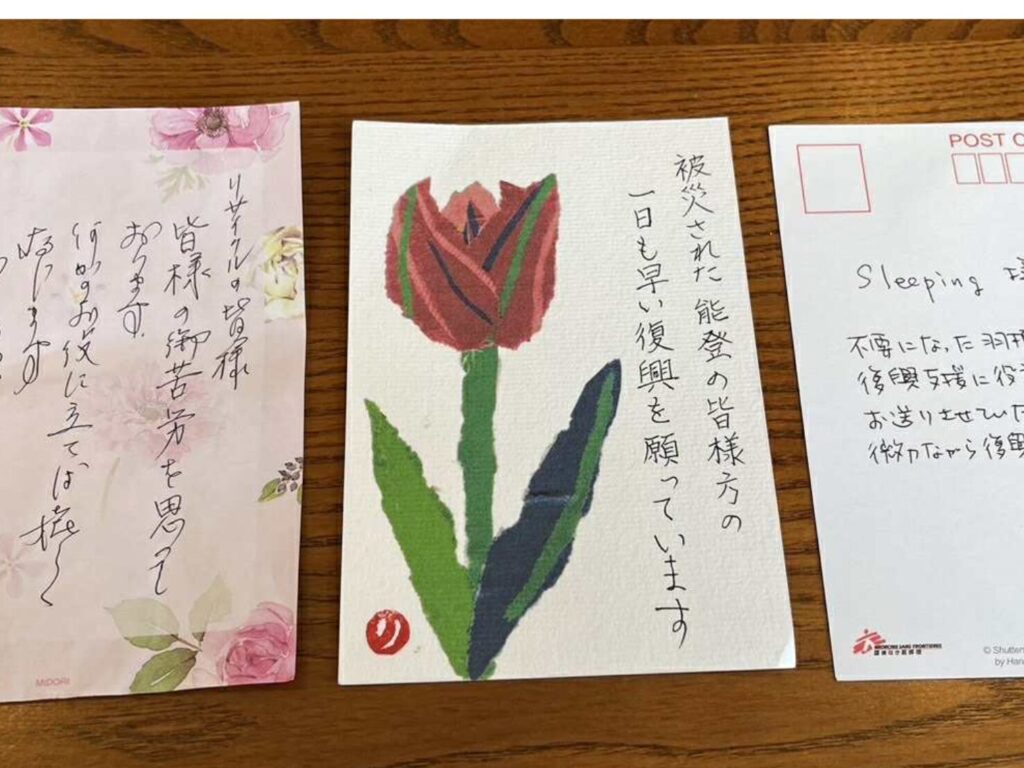 リサイクルの皆様
皆様の御苦労を思って
おります.
何かのお役に立てば嬉しく
存じます
MIDORI
被災された能登の皆様方の
一日も早い復興を願っています
り
POST C
Sleeping
不要になった羽
復興支援に役
お送りさせていた
微力ながら復興
MEDECINS SANS FRONTIERES
国境なき医師団
© Shutter
by Har